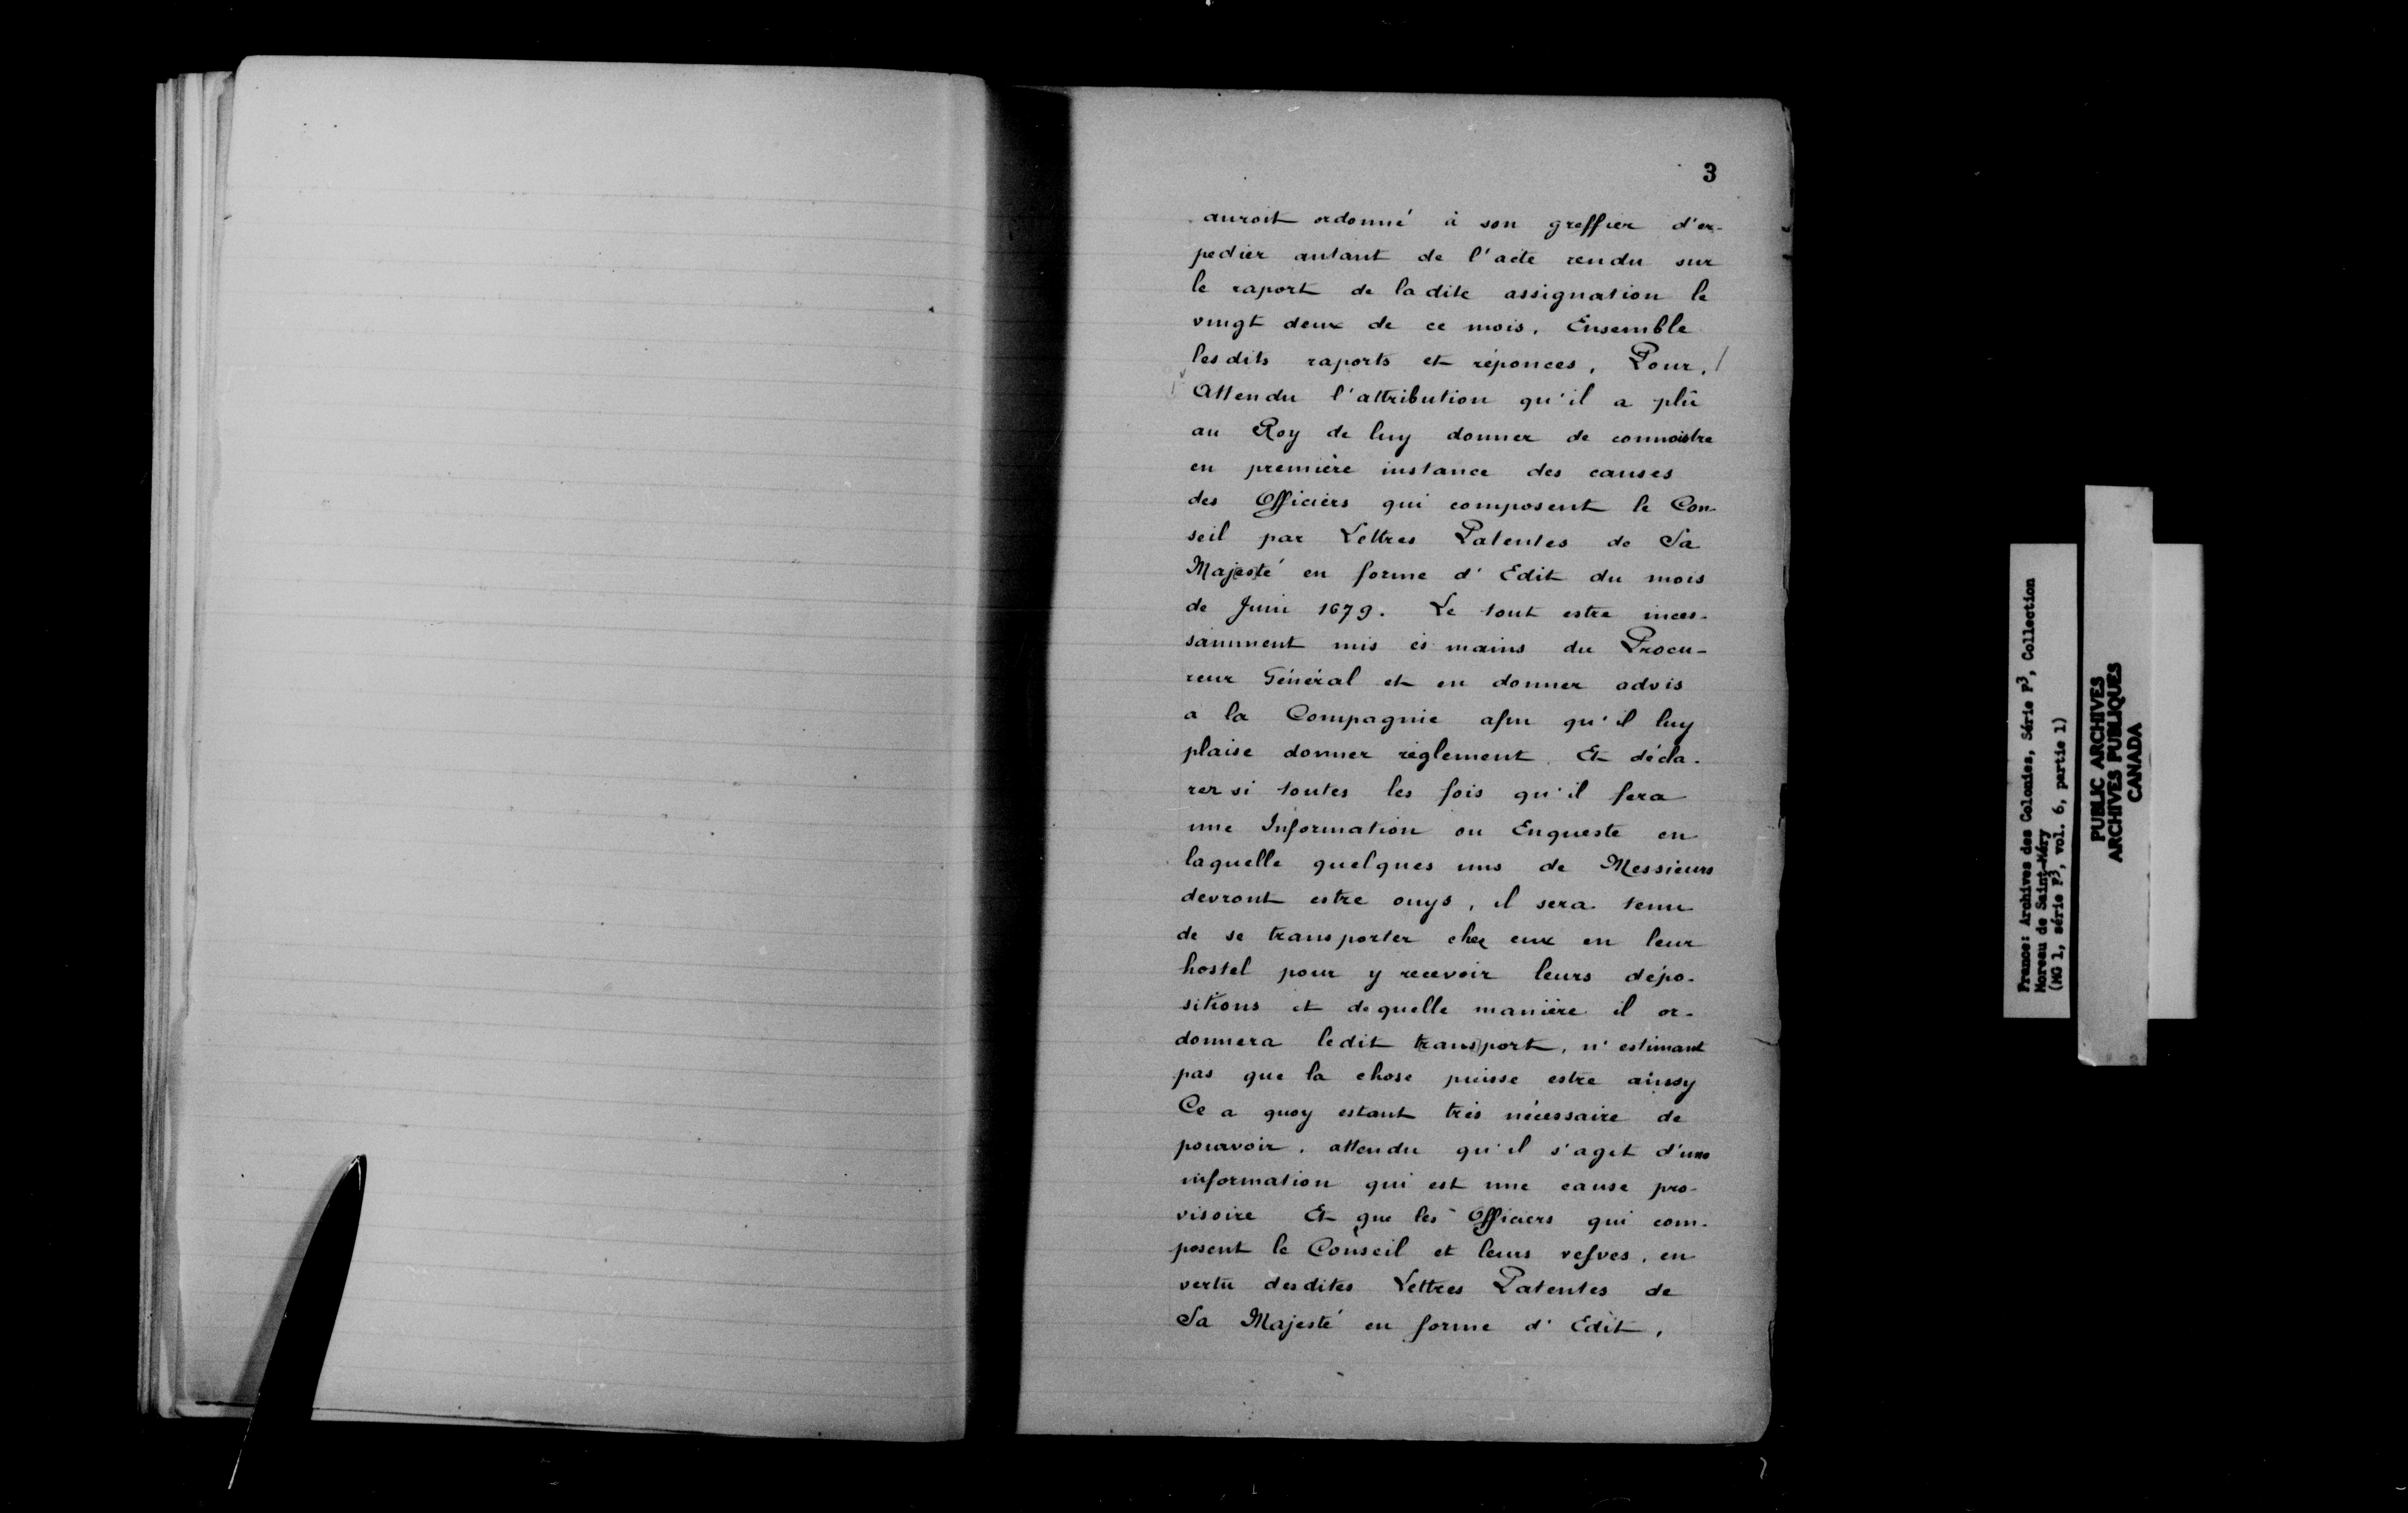 3
auroit ordonné à son greffier d'ex-
pedier autant de l'acte rendu sur
le raport de la dite assignation le
vingt deux de ce mois. Ensemble
les dits raports et réponces, Pour,
Attendu l'attribution qu'il a plû
au Roy de luy donner de connoistre
en première instance des causes
des Officiers qui composent le Con-
seil par Lettres Patentes de Sa
Majesté en forme d'Edit du mois
de Juin 1679. Le tout estre inces-
samment mis ès mains du Procu-
reur Général et en donner advis
a la Compagnie afin qu'il luy
plaise donner règlement. Et décla-
rer si toutes les fois qu'il fera
une Information ou Enqueste en
laquelle quelques uns de Messieurs
devront estre ouys, il sera tenu
de se transporter chez eux en leur
hostel pour y recevoir leurs dépo-
sitions et de quelle manière il or-
donnera ledit transport, n'estimant
pas que la chose puisse estre ainsy
Ce a quoy estant très nécessaire de
pourvoir, attendu qu'il s'agit d'une
information qui est une cause pro-
visoire Et que les Officiers qui com-
posent le Conseil et leurs vefves, en
vertu desdites Lettres Patentes de
Sa Majesté en forme d'Edit,
France: Archives des Colonies, Série F3, Collection
Moreau de Saint-Méry
(MG 1, série F3, vol. 6, partie 1)
PUBLIC ARCHIVES
ARCHIVES PUBLIQUES
CANADA